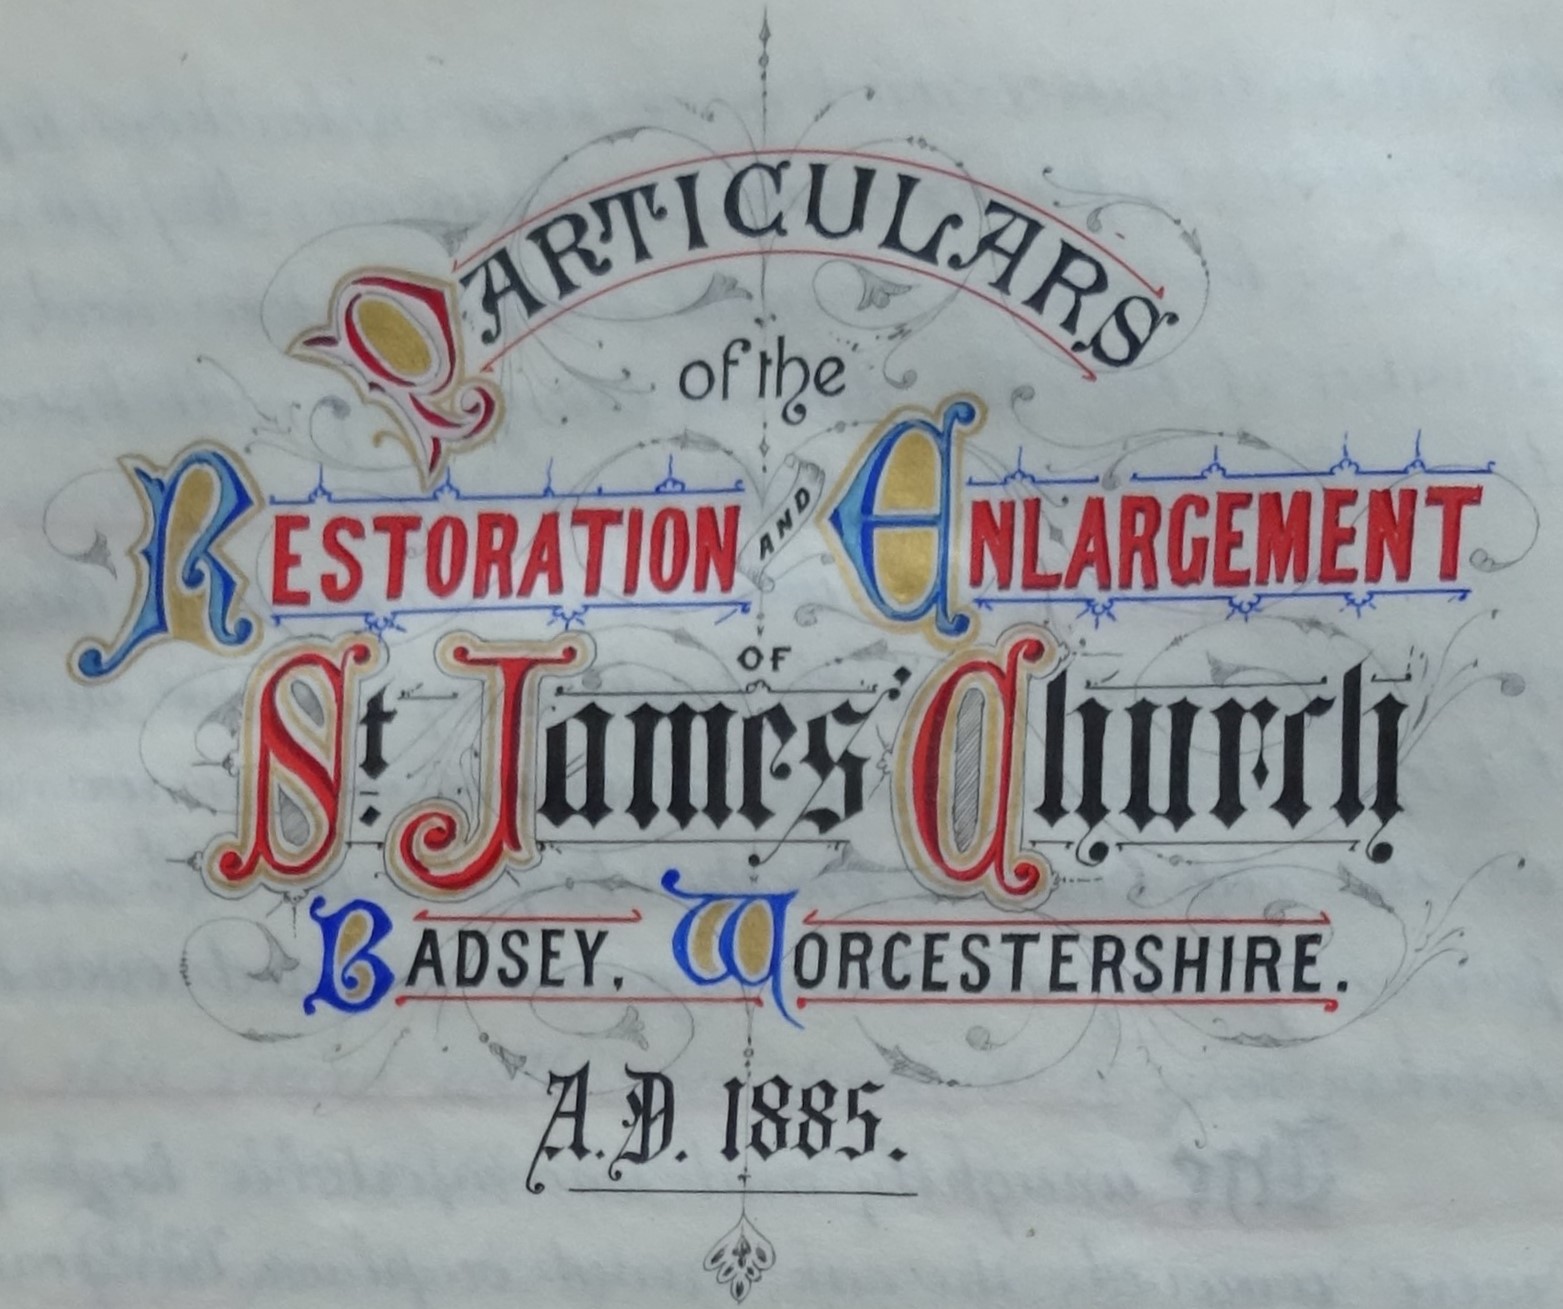 PARTICULARS
of the
RESTORATION AND ENLARGEMENT
OF
St. James' Church
BADSEY. WORCESTERSHIRE.
A.D. 1885.